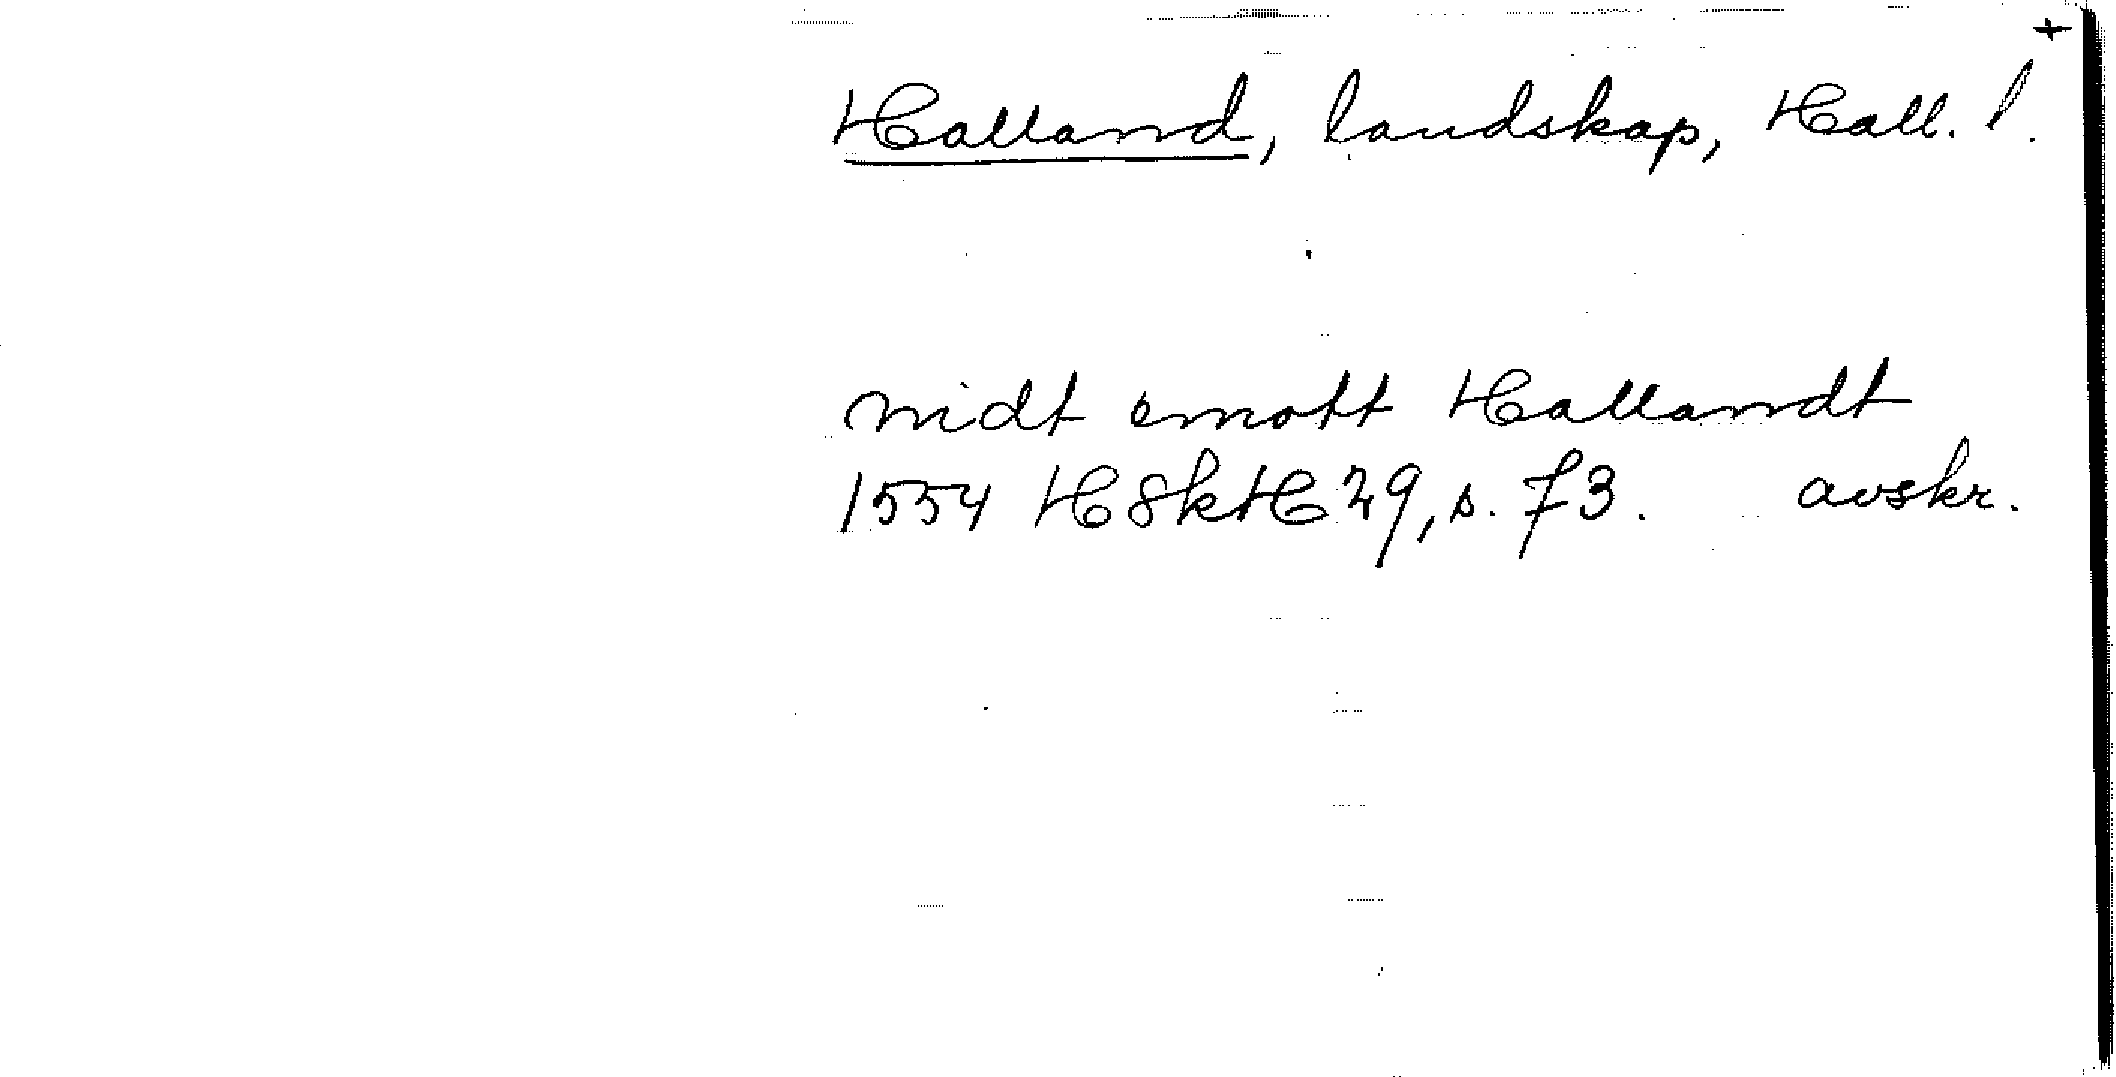 +
Halland, landskap, Hall. l.
midt emott Hallandt
1554 HSkH 29, s. 73. avskr.